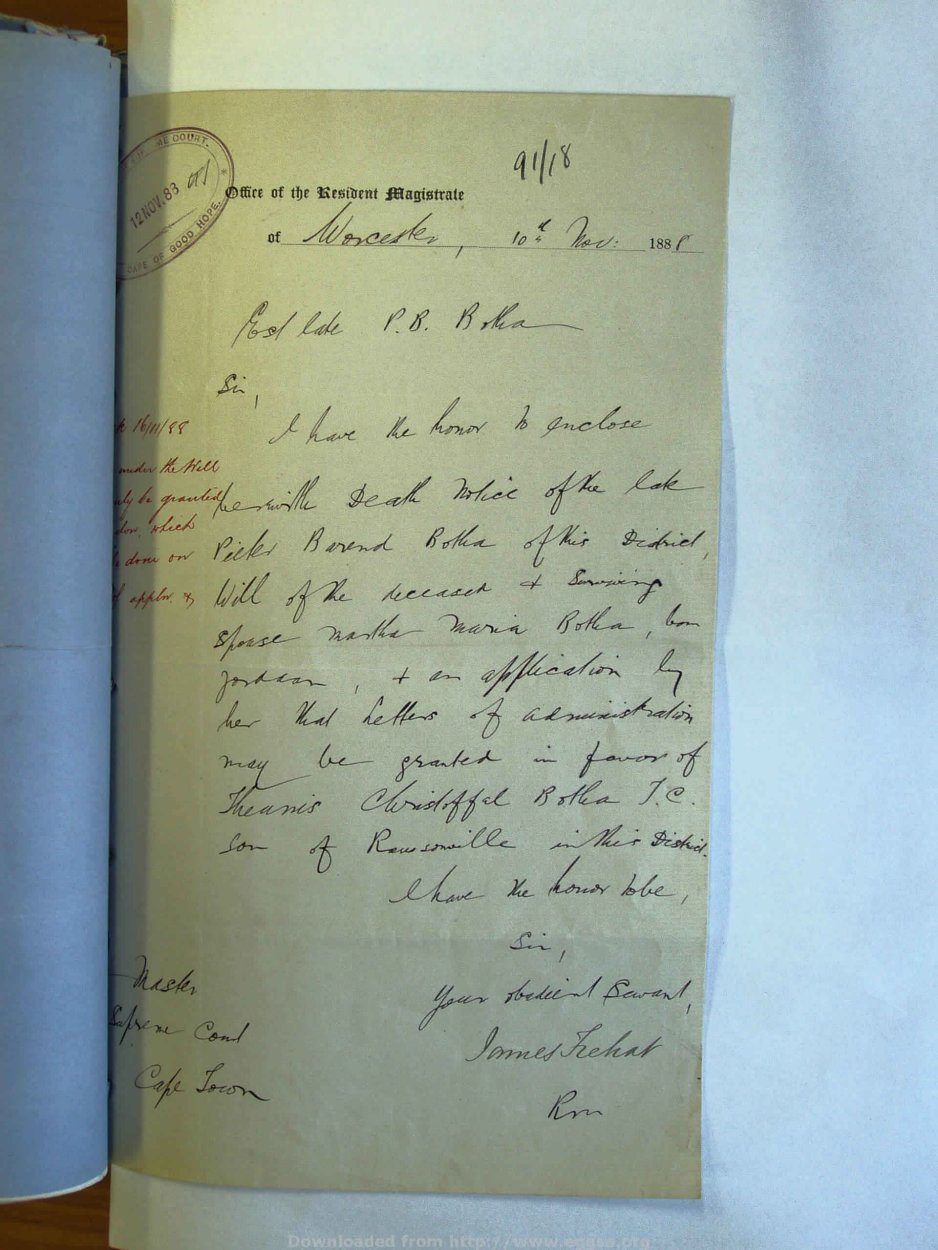 COURT.
12 NOV. 83
CAPE OF GOOD HOPE.
91/18
Office of the Resident Magistrate
of Worcester, 10th Nov: 1888
Est late P. B. Botha
Sir,
I have the honor to enclose
herewith Death Notice of the late
Pieter Barend Botha of this District,
Will of the deceased & Surviving
Spouse Martha Maria Botha, born
Jordaan, & an application by
her that Letters of administration
may be granted in favor of
Theunis Christoffal Botha T.C.
son of Rawsonville in this District.
I have the honor to be,
Sir,
Your obedient Servant,
James
RM
Master
Supreme Court
Cape Town
16/11/88
under the Will
be granted
which
done on
&
Downloaded from http://www.eggsa.org